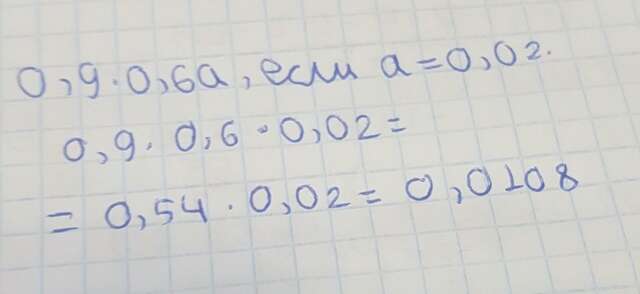 0,9·0,6a, если a=0,02.
0,9·0,6·0,02=
=0,54·0,02=0,0108